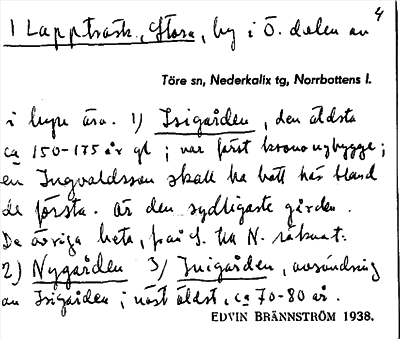 4
1 Lappträsk, Stora, by i Ö. delen av
Töre sn, Nederkalix tg, Norrbottens l.
i byn äro. 1) Isigården, den äldsta
ca 150-175 år gl ; var först krononybygge ;
en Ingvaldsson skall ha bott här bland
de första. är den sydligaste gården.
De övriga heta, från S. till N. räknat:
2) Nygården 3) Inigården, avsöndring
av Isigården ; näst äldst, ca 70-80 år.
EDVIN BRÄNNSTRÖM 1938.